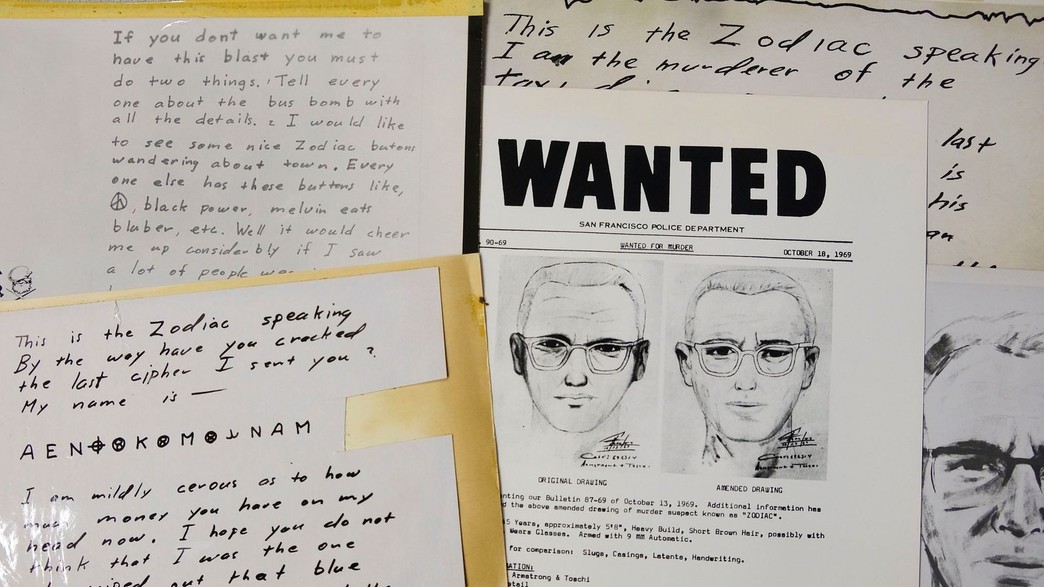 If you dont want me to
have this blast you must
do two things. Tell every
one about the bus bomb with
all the details. 2 I would like
to see some nice Zodiac butons
wandering about town. Every
one else has these buttons like,
, black power, melvin eats
bluber, etc. Well it would cheer
me up considerbly if I saw
a lot of people
This is the Zodiac speaking
By the way have you cracked
the last cipher I sent you?
My name is —
AEN⌖⊗K⊗M⊗⅃NAM
I am mildly cerous as to how
much money you have on my
head now. I hope you do not
think that I was the one
out that blue
This is the Zodiac speaking
I am the murderer of the
last
is
his
WANTED
SAN FRANCISCO POLICE DEPARTMENT
90-69 WANTED FOR MURDER OCTOBER 18, 1969
ORIGINAL DRAWING AMENDED DRAWING
nting our Bulletin 87-69 of October 13, 1969. Additional information has
d the above amended drawing of murder suspect known as "ZODIAC".
5 Years, approximately 5'8", Heavy Build, Short Brown Hair, possibly with
Wears Glasses. Armed with 9 MM Automatic.
for comparison: Slugs, Casings, Latents, Handwriting.
ATION:
Armstrong & Toschi
etail